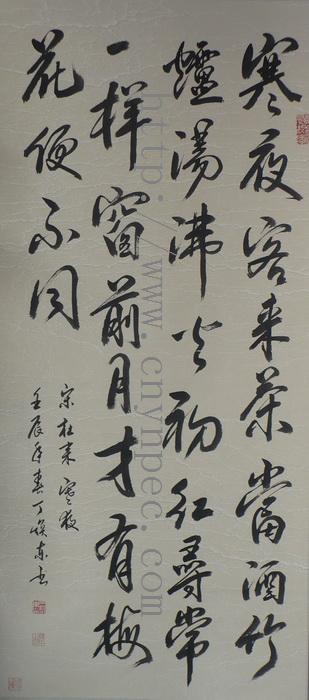 寒夜客来茶當酒竹
爐湯沸火初红尋常
一样窗前月才有梅
花便不同
宋杜耒寒夜
壬辰年春丁焕东书
http://www.cnynpec.com